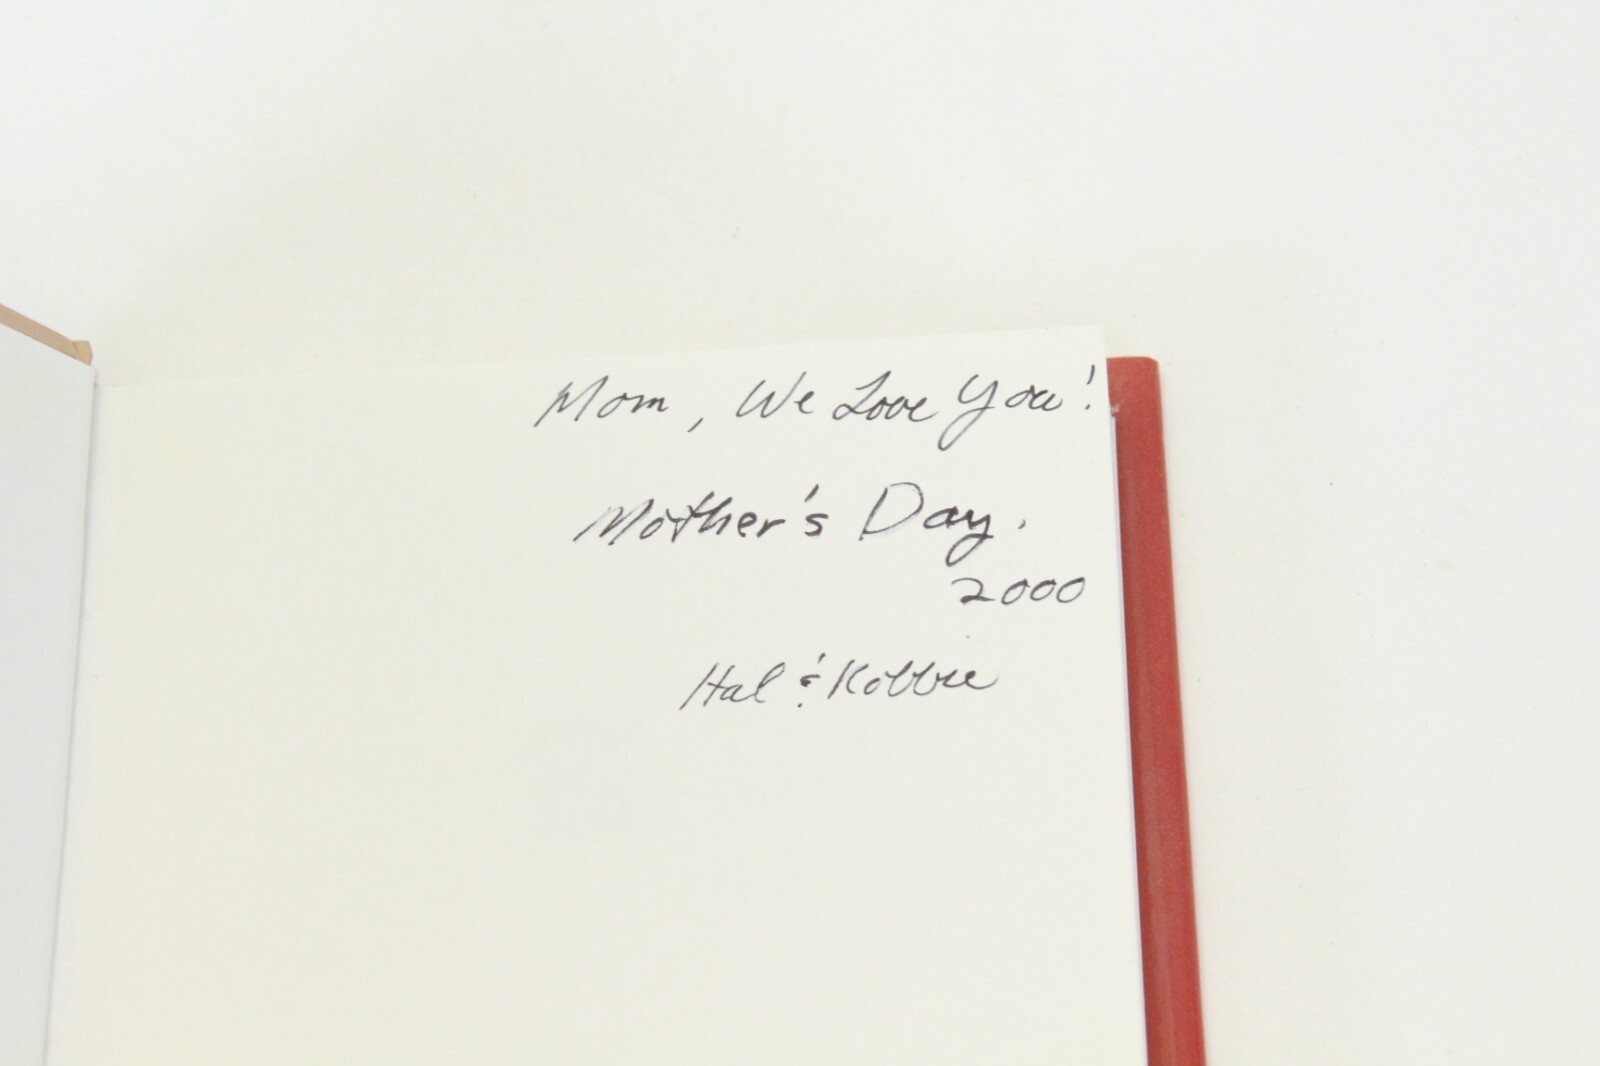 Mom, We Love You!
Mother's Day.
2000
Hal & Robbie